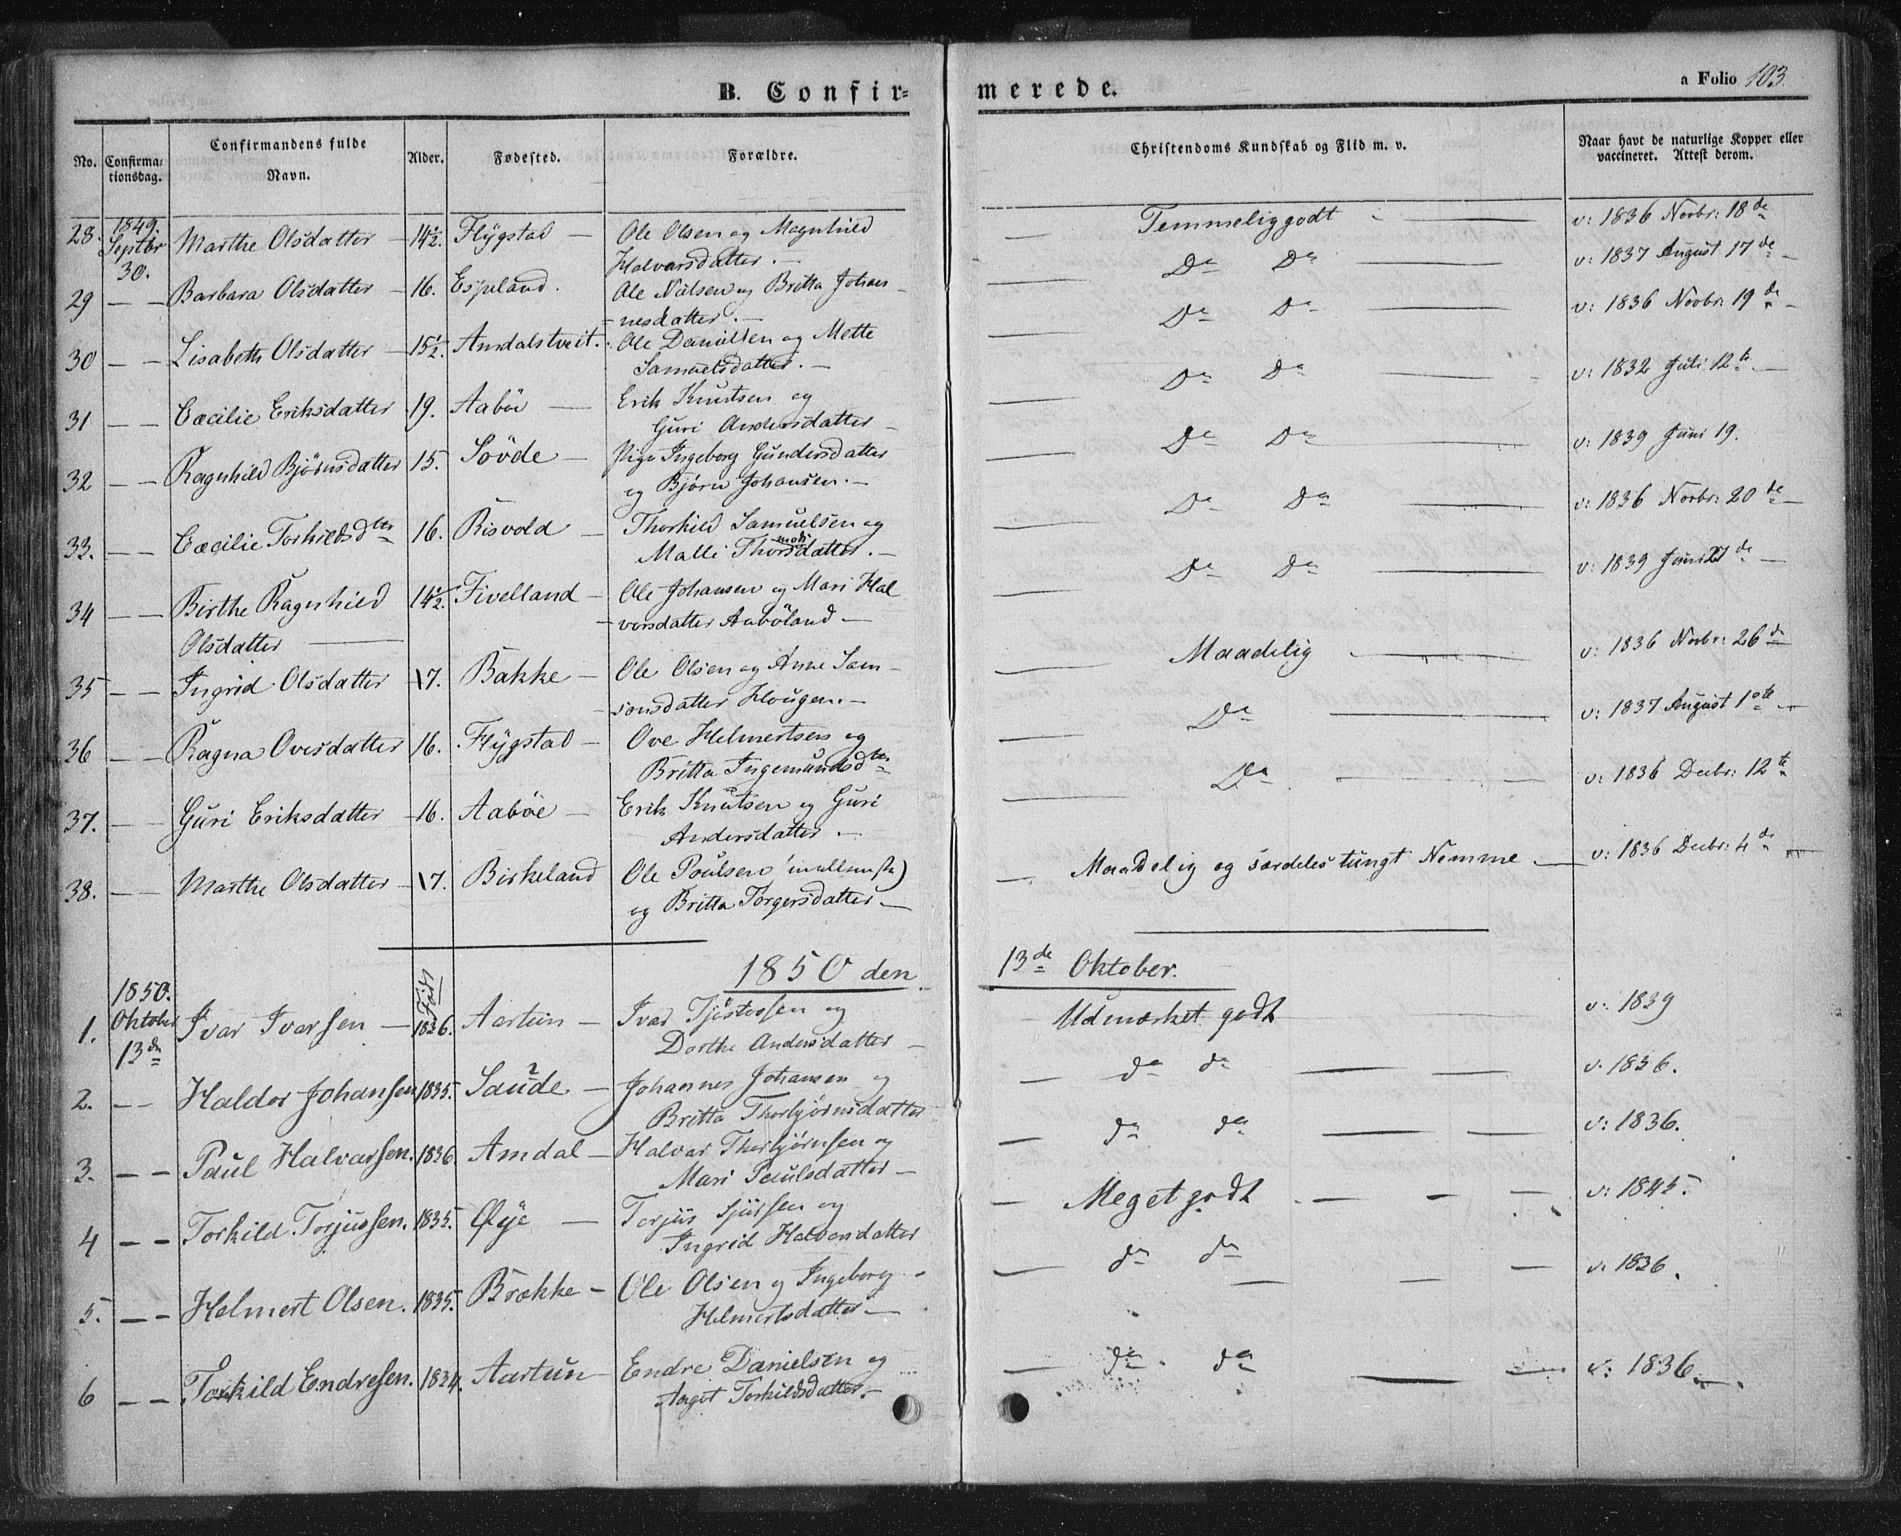 B. Confir- merede. a Folio 103
No. Confirma- tionsdag. Confirmandens fulde Navn. Alder. Fødested. Forældre. Christendoms Kundskab og Flid m. v. Naar havt de naturlige Kopper eller vaccineret. Attest derom.
28. 1849. Septbr 30. Marthe Olsdatter 14½. Flÿgstad Ole Olsen og Magnhild Halvarsdatter. Temmelig godt v: 1836 Novbr: 18de
29 Barbara Olsdatter 16. Espeland. Ole Nilsen og Britta Johannesdatter. Do Do v: 1837 August 17de
30 Lisabeth Olsdatter 15½. Amdalstveit. Ole Danielsen og Mette Samuelsdatter. Do Do v: 1836 Novbr: 19de
31 Cæcilie Eriksdatter 19. Aabøe Erik Knutsen og Guri Andersdatter Do Do v: 1832 Juli 12te
32 Ragnhild Bjørnsdatter 15. Søvde Pige Ingeborg Gundersdatter og Bjørn Johansen. Do Do v: 1839 Juni 19.
33. Cæcilie Torkildsdtr 16. Risvold Thorkild Samuelsen og Malli Thorsdatter. Do Do v: 1836 Novbr: 20de
34 Birthe Ragnhild Olsdatter 14½. Fivelland Ole Johansen og Mari Halvorsdatter Aabøland Do Do v: 1839 Juni 27de
35 Ingrid Olsdatter 17. Bakke Ole Olsen og Anne Samsonsdatter Hougen. Maadelig v: 1836 Novbr: 26de
36 Ragna Ovesdatter 16. Flÿgstad Ove Helmertsen og Britta Ingemundsdtr Do v: 1837 August 10te
37. Guri Eriksdatter 16. Aabøe Erik Knutsen og Guri Andersdatter. Do v: 1836 Decbr: 12te
38. Marthe Olsdatter 17. Birkeland Ole Poulsen og Britta Torgersdatter Maadelig og særdeles tungt Nemme v: 1836 Decbr: 4de
1850 den 13de Oktober.
1. 1850. Oktober 13de Ivar Ivarsen Født 1836. Aartun Ivar Tjøstessen og Dorthe Andersdatter Udmærket godt v: 1839
2. Haldor Johansen 1835. Saude Johannes Johansen og Britta Thorbjørnsdatter do do v. 1836.
3. Paul Halvarsen. 1836. Amdal Halvar Thorbjørnsen og Mari Paulsdatter do do v: 1836.
4 Torkild Torjussen. 1835. Øye Torjus Sjursen og Ingrid Halvorsdatter Meget godt v: 1845.
5. Helmert Olsen. 1835. Brække Ole Olsen og Ingeborg Helmertsdatter do do v. 1836.
6 Torkild Endresen. 1834. Aartun Endre Danielsen og Aagot Torkildsdatter. do do v: 1836.